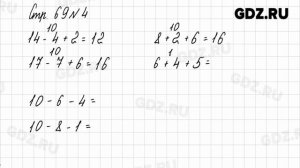 GDZ.RU
Стр. 69 №4
10
14-4+2=12
10
17-7+6=16
10-6-4=
10-8-1=
10
8+2+6=16
1
6+4+5=
GDZ.RU
GDZ.RU
GDZ.RU